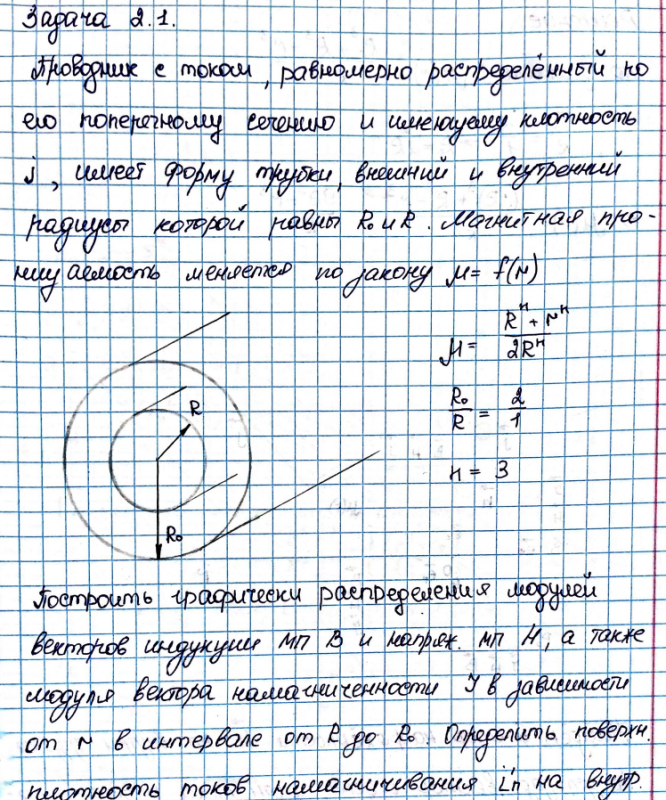 Задача 2.1.
Проводник с током, равномерно распределённый по
его поперечному сечению и имеющему плотность
j, имеет форму трубки, внешний и внутренний
радиусы которой равны R₀ и R. Магнитная про-
ницаемость меняется по закону μ= f(r)
μ = (Rⁿ + rⁿ)/(2Rⁿ)
R₀/R = 2/1
n = 3
R
R₀
Построить графически распределения модулей
векторов индукции МП B и напряж. МП H, а также
модуля вектора намагниченности J в зависимости
от r в интервале от R до R₀. Определить поверхн.
плотность токов намагничивания i'ₙ на внутр.